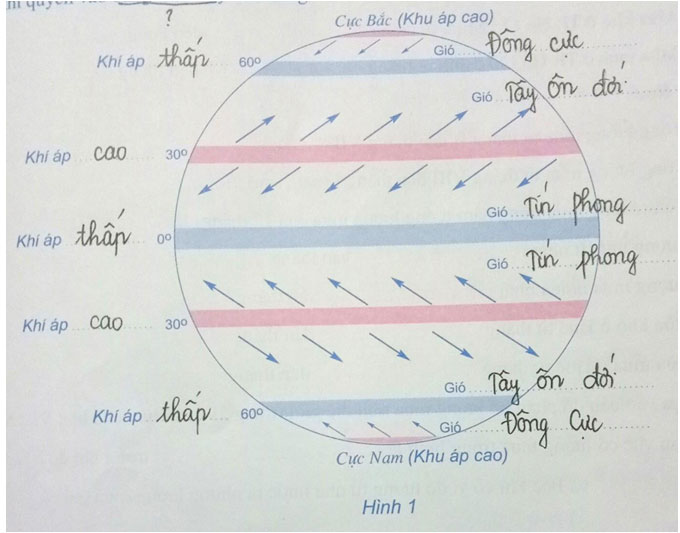 ?
Cực Bắc (Khu áp cao)
Khí áp thấp 60º Gió Đông cực
Gió Tây ôn đới
Khí áp cao 30º
Gió Tín phong
Khí áp thấp 0º
Gió Tín phong
Khí áp cao 30º
Gió Tây ôn đới
Khí áp thấp 60º
Gió Đông Cực
Cực Nam (Khu áp cao)
Hình 1